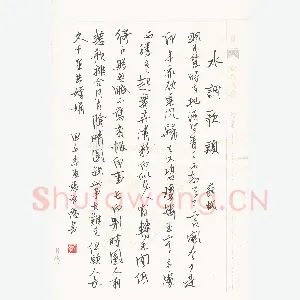 水調歌頭
蘇軾
明月幾時有把酒問青天不知天上宮闕今夕是
何年我欲乘風歸去又恐瓊樓玉宇高處
不勝寒起舞弄清影何似在人間轉朱閣低
綺戶照無眠不應有恨何事長向別時圓人有
悲歡離合月有陰晴圓缺此事古難全但願人長
久千里共嬋娟
Shufawang.CN